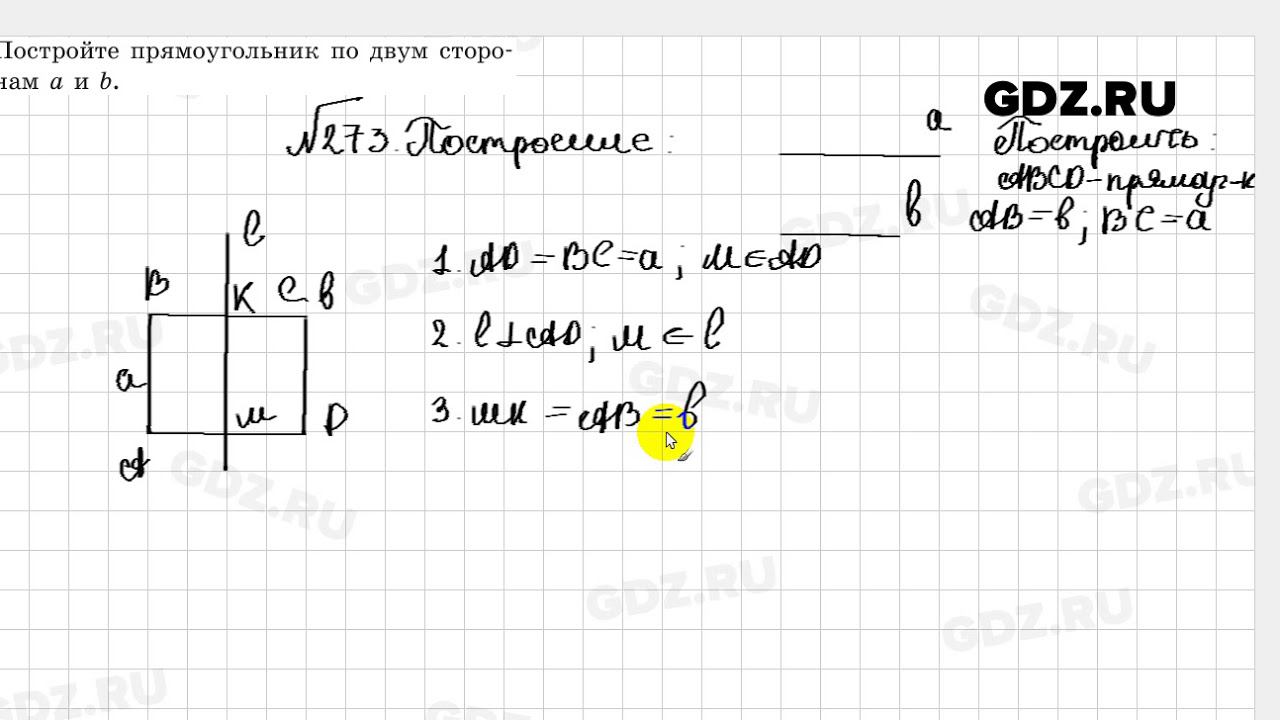 Постройте прямоугольник по двум сторо-
нам a и b.
GDZ.RU
№273. Построение:
a
Построить:
ABCD-прямоуг-к
b
AB=b; BC=a
l
1. AD=BC=a; M∈AD
B
K
C
b
2. l⊥AD; M∈l
a
3. MK=AB=b
M
D
A
GDZ.RU
GDZ.RU
GDZ.RU
GDZ.RU
GDZ.RU
GDZ.RU
GDZ.RU
GDZ.RU
GDZ.RU
GDZ.RU
GDZ.RU